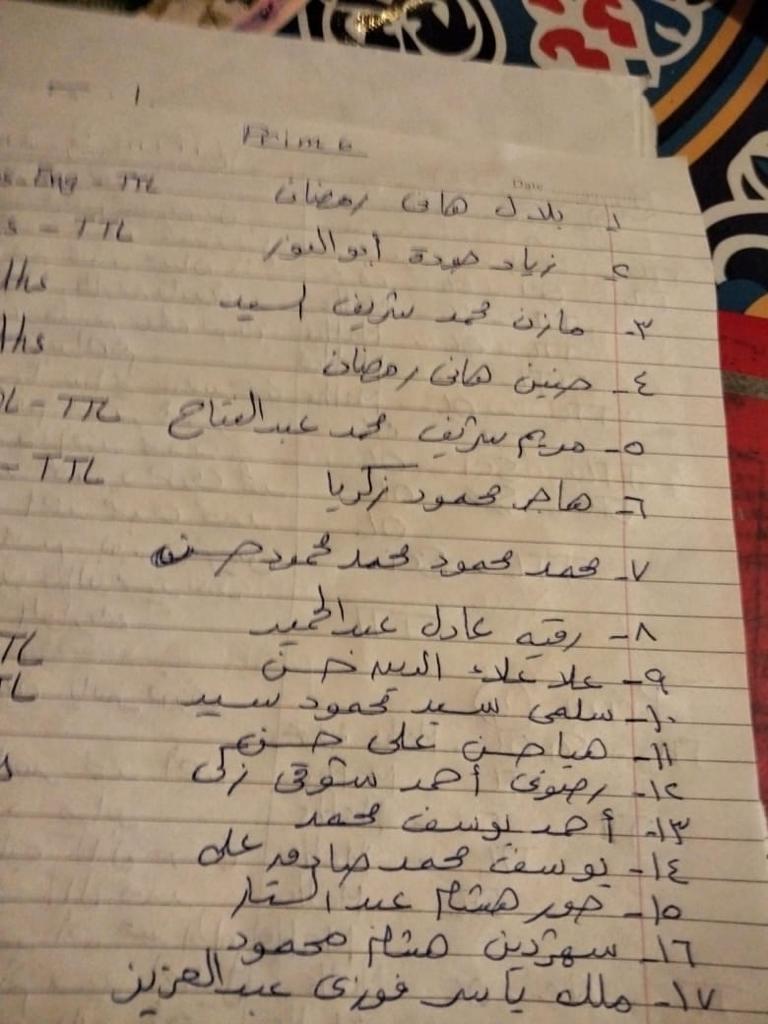 1
Prim 6
Date
١ بلال هانى رمضان Eng - TTL
٢ زياد حودة أبو النور - TTL
٣- مازن محمد شريف السيد ths
٤- حنين هانى رمضان ths
٥- مريم شريف محمد عبد الفتاح - TTL
٦- هاجر محمود زكريا - TTL
٧- محمد محمود محمد محمود حسن
٨- رقيه عادل عبد الحميد
٩- علا علاء الدين حسن TL
١٠- سلمى سيد محمود سيد TL
١١- هيا حسن على حسن
١٢- رضوى أحمد شوقى زكى s
١٣- أحمد يوسف محمد
١٤- يوسف محمد صادق على
١٥- حور هشام عبد الستار
١٦- هشام محمود
١٧- ملك ياسر فوزى عبد العزيز